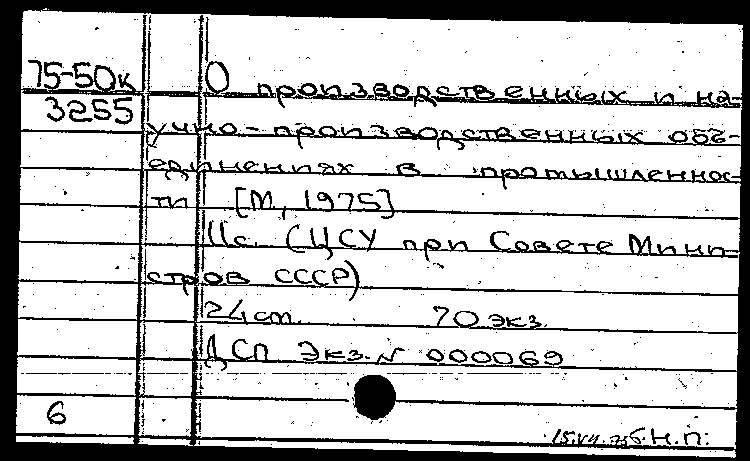 75-50к О производственных и на-
3255
учно-производственных объ-
единениях в промышленнос-
ти [М, 1975]
11с. (ЦСУ при Совете Мини-
стров СССР)
24 ст. 70 экз.
ДСП Экз. № 000069
6
15.VII.75 б.н.п.